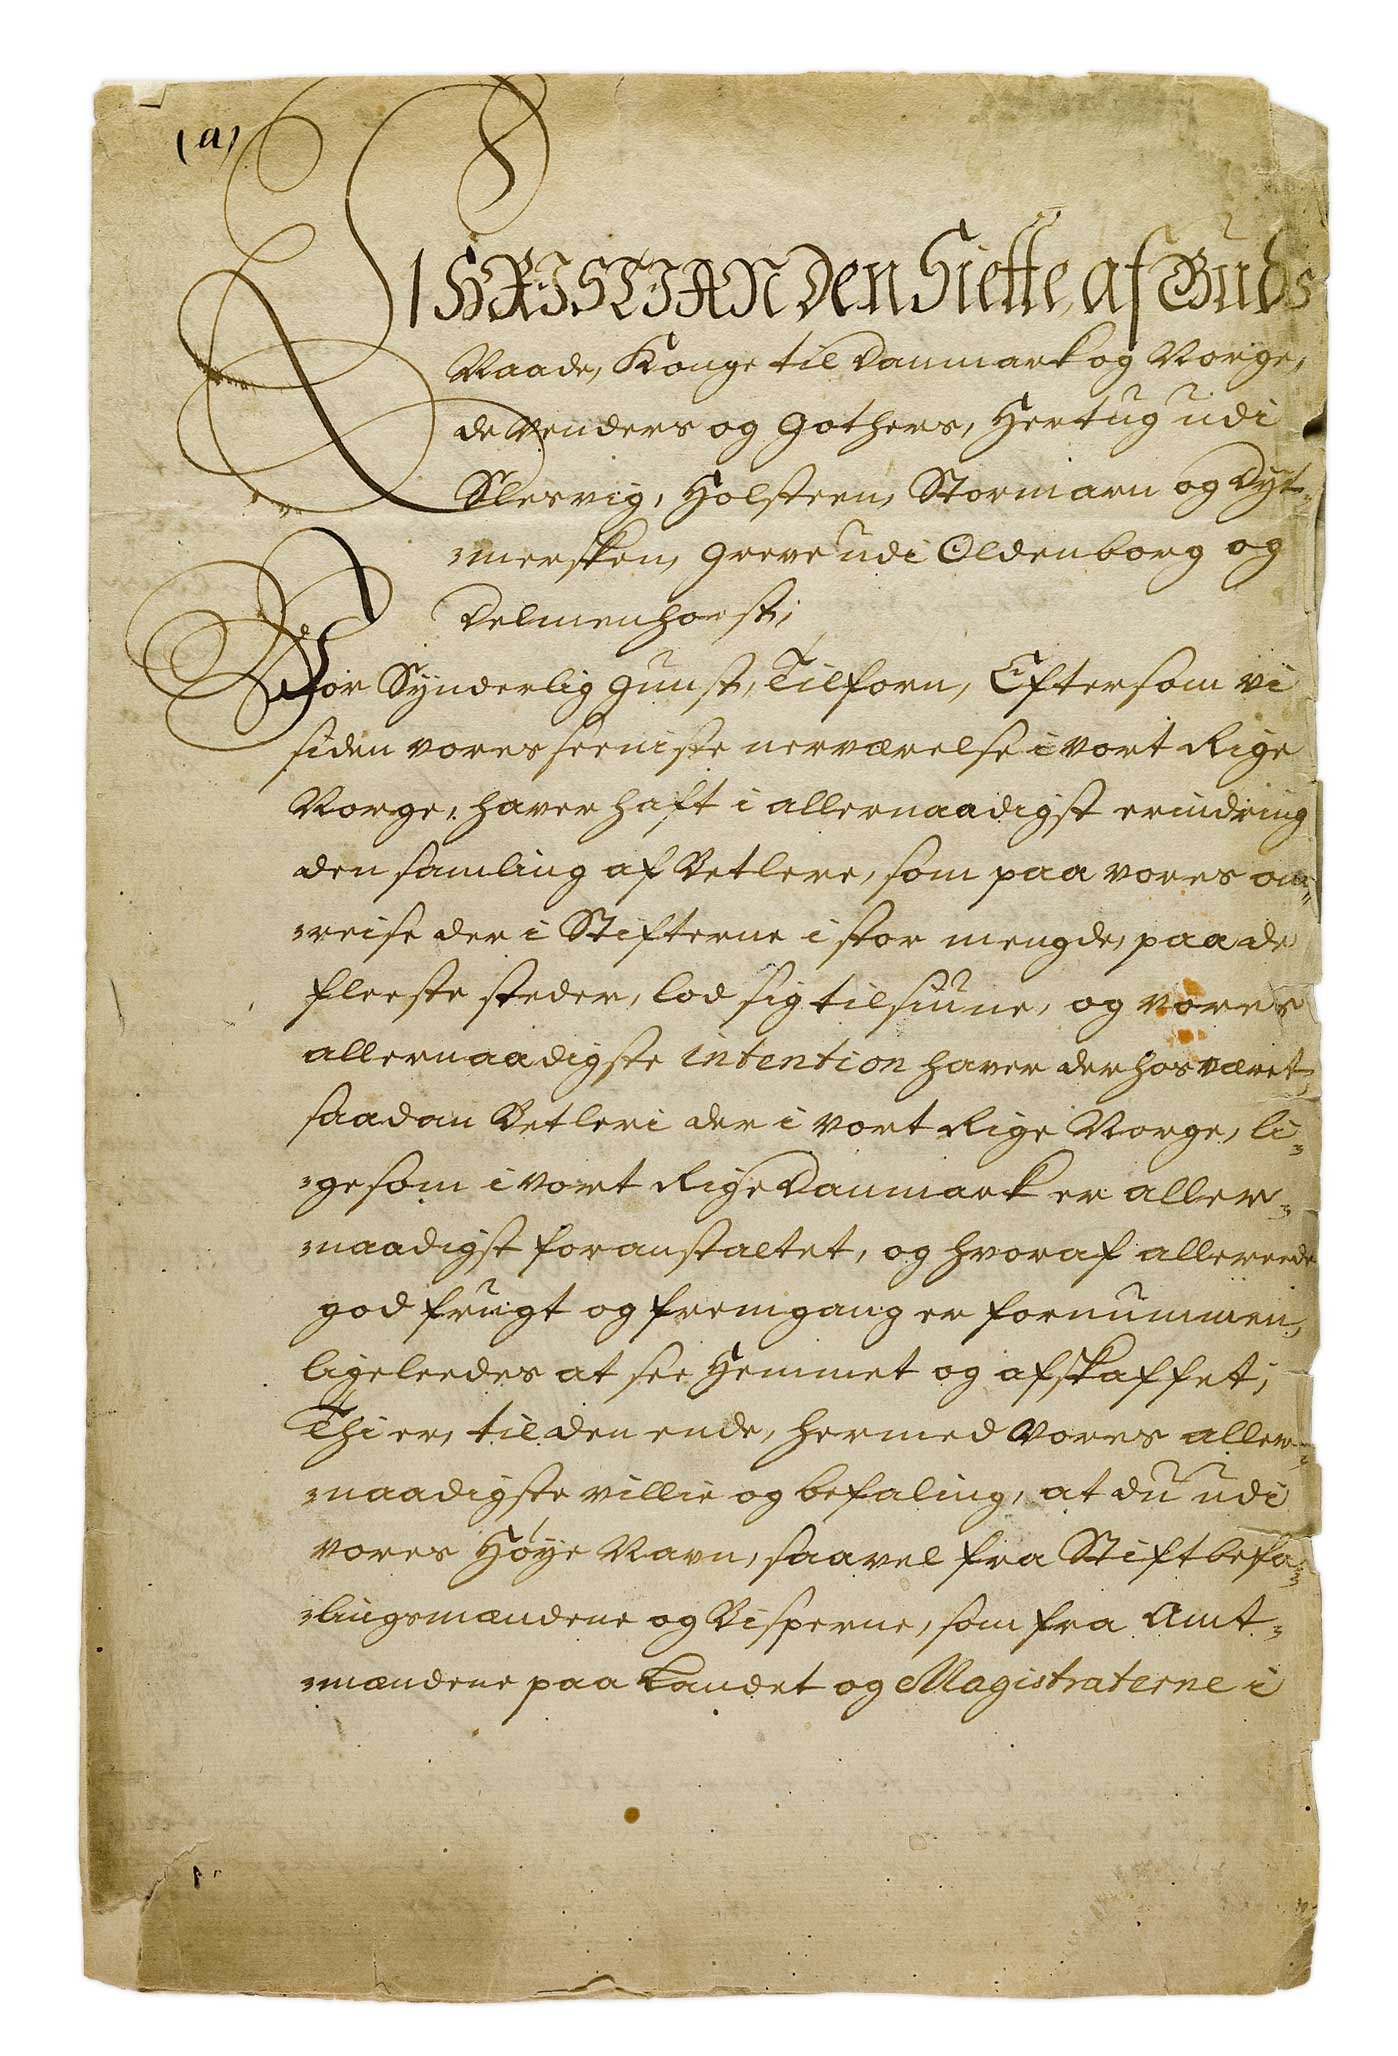 (a)
CHRISTIAN den Siette, af Guds
Naade, Konge til Danmark og Norge,
de Venders og Gothers, Hertug udi
Slesvig, Holsteen, Stormarn og Dyt-
mersken, Greve udi Oldenborg og
Delmenhorst;
Vor Synderlig Gunst, Tilforn, Eftersom vi
siden vores seeniste nerværelse i vort Rige
Norge, haver haft i allernaadigst erindring
den samling af Betlere, som paa vores om-
reise der i Stifterne i stor mengde, paa de
fleeste steder, lod sig tilsiune, og vores
allernaadigste intention haver derhos været
saadan Betleri der i vort Rige Norge, li-
gesom i vort Rige Danmark er aller-
naadigst foranstaltet, og hvoraf allereede
god frugt og fremgang er fornummen,
ligeleedes at see Hemmet og afskaffet;
Thi er, til den ende, hermed Vores aller-
naadigste villie og befaling, at du udi
vores Høye Navn, saavel fra Stiftbefa-
lingsmændene og Bisperne, som fra Amt-
mændene paa Landet og Magistraterne i